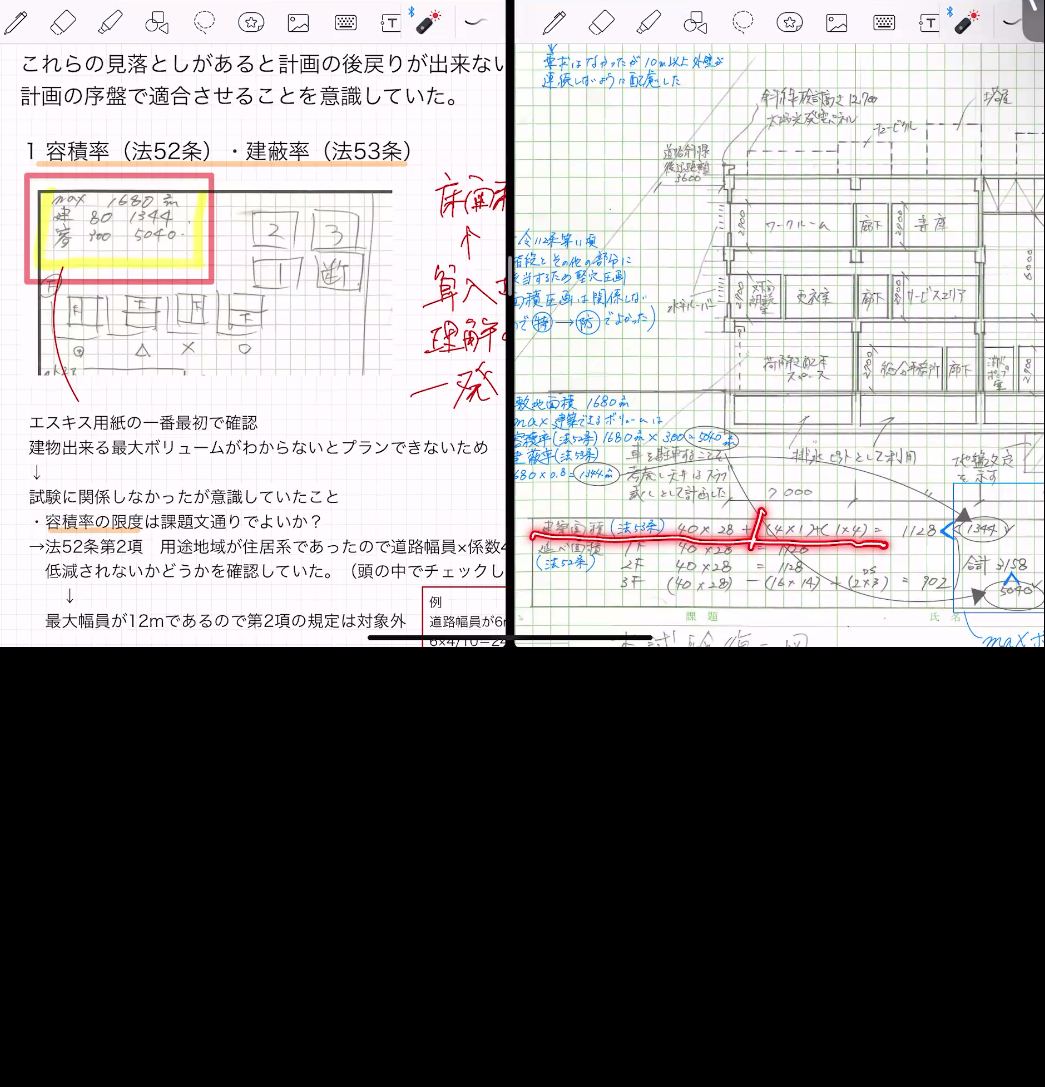 これらの見落としがあると計画の後戻りが出来ない
計画の序盤で適合させることを意識していた。
1 容積率（法52条）・建蔽率（法53条）
max 1680㎡
建 80 1344
容 300 5040
2 3
1 断
床面積
↑
算入
理解
一発
エスキス用紙の一番最初で確認
建物出来る最大ボリュームがわからないとプランできないため
↓
試験に関係しなかったが意識していたこと
・容積率の限度は課題文通りでよいか？
→法52条第2項　用途地域が住居系であったので道路幅員×係数4
低減されないかどうかを確認していた。（頭の中でチェックし
↓
最大幅員が12mであるので第2項の規定は対象外
例
道路幅員が6m
6×4/10=24
要求はなかったが10m以上外壁が
連係しないように配慮した
斜線検討高さ12,700
太陽光発電パネル
キュービクル
塔屋
道路斜線
後退距離
3600
ワークルーム
廊下
2900
書庫
6000
令112条第11項
階段とその他の部分に
該当するため竪穴区画
面積区画は関係しない
で 特 → 防 でよかった）
2900
更衣室
廊下
サービスエリア
水平ルーバー
スペース
2900
総合事務所
廊下
2900
敷地面積 1680㎡
max 建築できるボリュームは
容積率(法52条) 1680㎡×300=5040㎡
建蔽率(法53条)
1680×0.8=1344㎡
排水ピットとして利用
地盤支点
を示す
計画した
7000
建築面積 (法53条) 40×28 + (4×1)+(1×4) = 1128 < 1344
延べ面積 1F 40×28 = 1128
(法52条) 2F 40×28 = 1128
合計 3158
3F (40×28) - (16×14) + (2×3) = 902
DS
5040
課題
氏名
maxボ